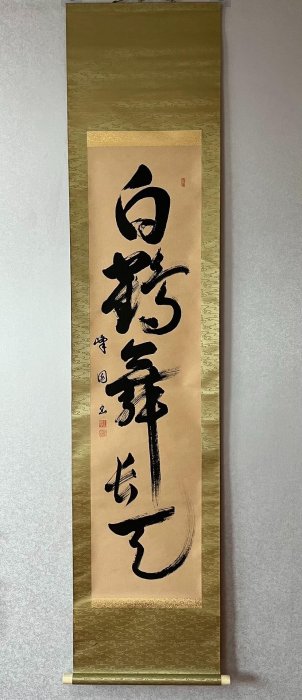 白鶴舞長天
峰園書